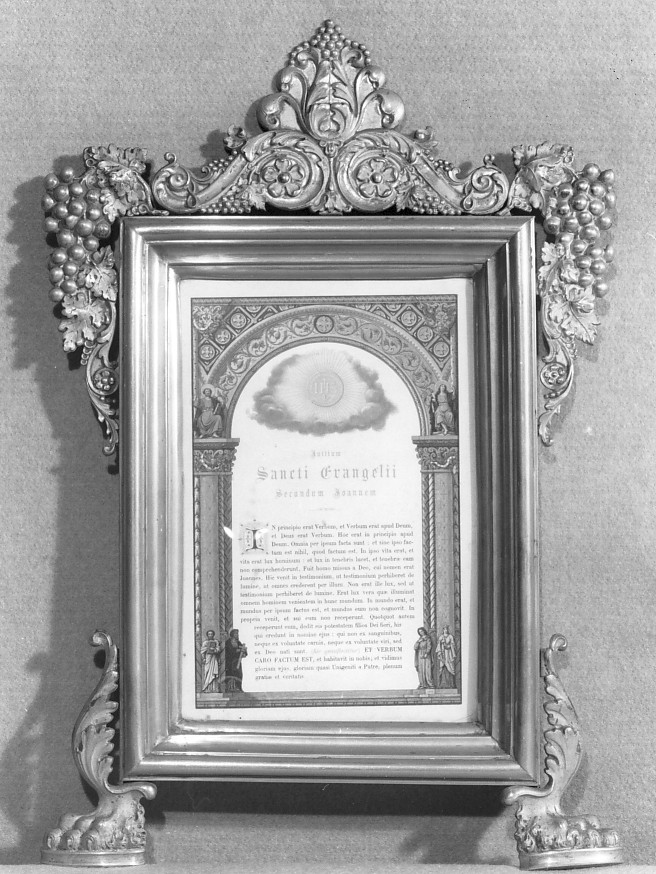 IHS
Initium
Sancti Evangelii
Secundum Joannem
IN principio erat Verbum, et Verbum erat apud Deum,
et Deus erat Verbum. Hoc erat in principio apud
Deum. Omnia per ipsum facta sunt : et sine ipso fac-
tum est nihil, quod factum est. In ipso vita erat, et
vita erat lux hominum : et lux in tenebris lucet, et tenebræ eam
non comprehenderunt. Fuit homo missus a Deo, cui nomen erat
Joannes. Hic venit in testimonium, ut testimonium perhiberet de
lumine, ut omnes crederent per illum. Non erat ille lux, sed ut
testimonium perhiberet de lumine. Erat lux vera quæ illuminat
omnem hominem venientem in hunc mundum. In mundo erat, et
mundus per ipsum factus est, et mundus eum non cognovit. In
propria venit, et sui eum non receperunt. Quotquot autem
receperunt eum, dedit eis potestatem filios Dei fieri, his
qui credunt in nomine ejus : qui non ex sanguinibus,
neque ex voluntate carnis, neque ex voluntate viri, sed
ex Deo nati sunt. ET VERBUM
CARO FACTUM EST, et habitavit in nobis; et vidimus
gloriam ejus, gloriam quasi Unigeniti a Patre, plenum
gratiæ et veritatis